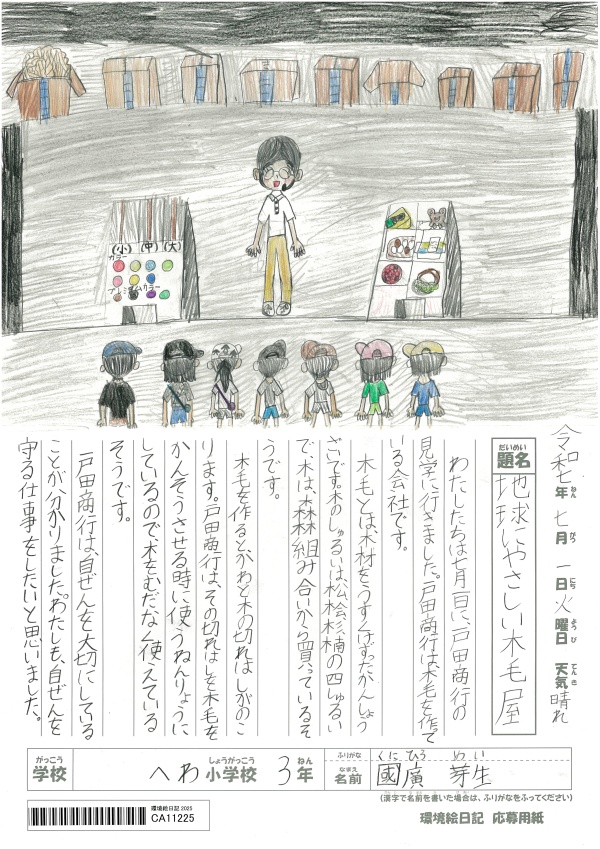 (小) (中) (大)
カラー
プレミアムカラー
令和七年 七月 一日 火曜日 天気 晴れ
ねん がつ にち ようび てんき
だいめい
題名 地球にやさしい木毛屋
わたしたちは七月一日に、戸田商行の
見学に行きました。戸田商行は、木毛を作って
いる会社です。
木毛とは、木材をうすくけずったかんしょう
ざいです。木のしゅるいは、松、桧、杉、楠の四しゅるい
で、木は、森林組み合いから買っているそ
うです。
木毛を作ると、かわと木の切れはしがのこ
ります。戸田商行は、その切れはしを木毛を
かんそうさせる時に使うねんりょうに
しているので、木をむだなく使えている
そうです。
戸田商行は、自ぜんを大切にしている
ことが分かりました。わたしも、自ぜんを
守る仕事をしたいと思いました。
がっこう しょうがっこう ねん
学校 へわ 小学校 3年
ふりがな くにひろ めい
なまえ
名前 國廣 芽生
(漢字で名前を書いた場合は、ふりがなをふってください)
環境絵日記2025
CA11225
環境絵日記 応募用紙